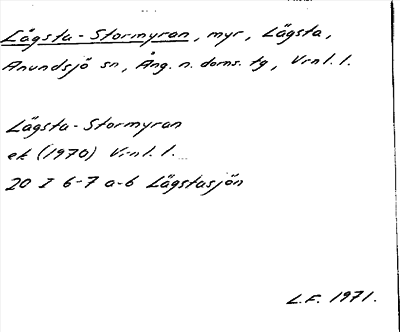 Lägsta-Stormyran, myr, Lägsta,
Anundsjö sn, Ång. n. doms. tg, Vrnl. l.
Lägsta-Stormyran
ek (1970) Vrnl. l.
20 I 6-7 a-b Lägstasjön
L.F. 1971.